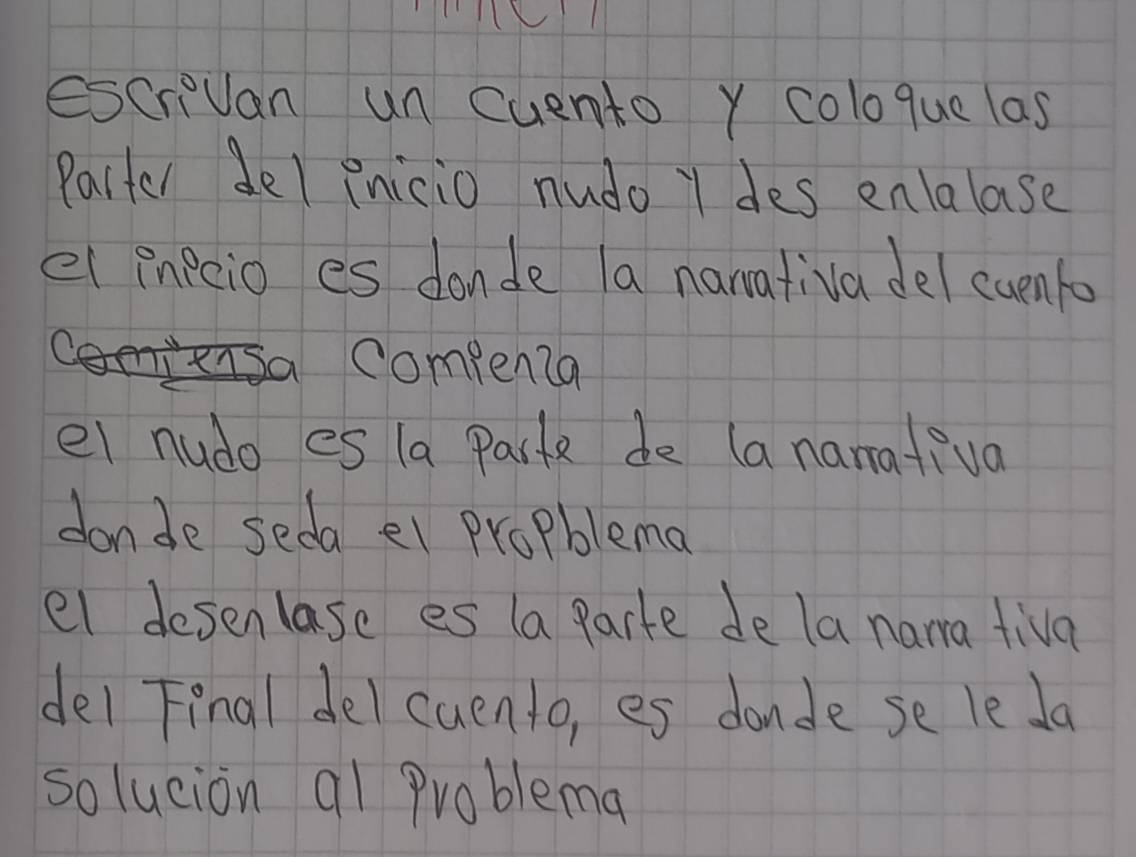 escrivan un cuento y coloque las
Partes del inicio nudo y des enlalase
el inicio es donde la narrativa del cuento
Comiensa comienza
el nudo es la parte de la narrativa
donde seda el propblema
el desenlase es la parte de la narra tiva
del Final del cuento, es donde se le da
solución al problema